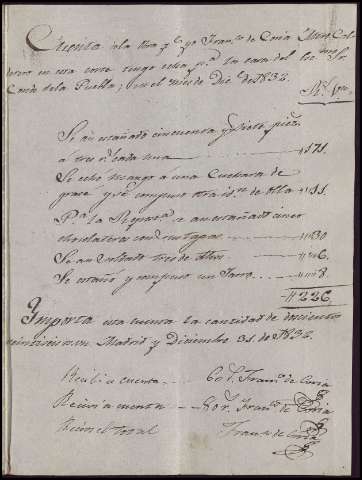 Cuenta de la obra q.e yo Fran.co de Coria Mtro Cal
derero en esta corte tengo echa p.a la casa del Ex.mo Sr
Conde de la Puebla; en el mes de Dic.e de 1832.
Rs. von
Se an estañado cincuenta y siete piez.s
a tres r.s cada una 171.
Se echo mango a una Cuchara de
y se compuso otra id.n de olla 11.
P.a la Repos.a se an estañado cinco
chocolateras con sus tapas 30
Se an soldado tres de ellas 6.
Se estañó y compuso un Jarro 8.
226
Importa esta cuenta la cantidad de doscientos
veintiseis rs. vn. Madrid y Diciembre 31 de 1832.
Recibi a cuenta Fran.co de Coria
Recivi a cuenta Fran.co de Coria
Recivi el total Fran.co de Coria